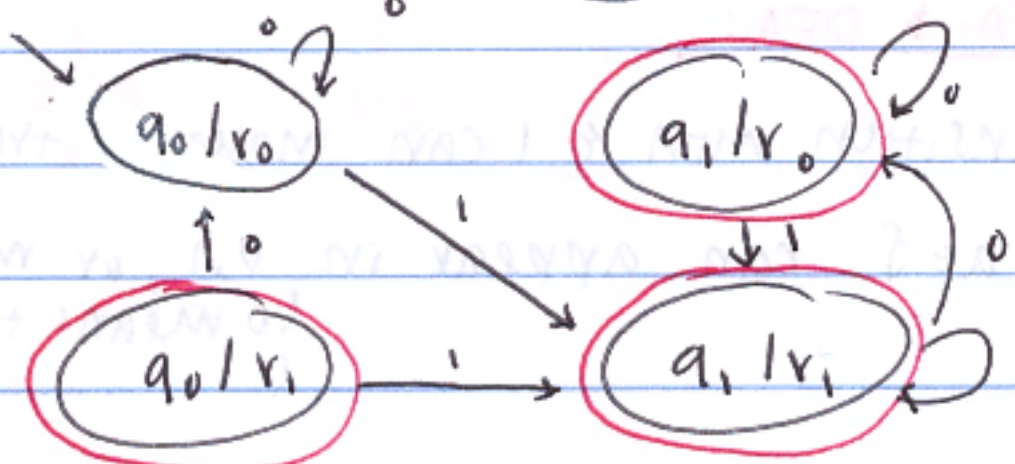 0
0
q₀/r₀
q₁/r₀
0
1
0
1
0
q₀/r₁
1
q₁/r₁